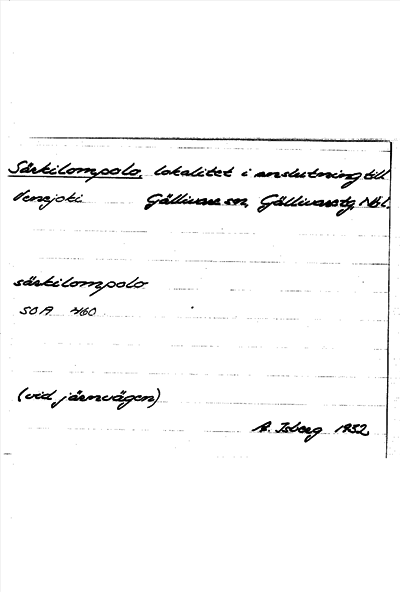 Särkilompolo, lokalitet i anslutning till
Venejoki Gällivare sn, Gällivare tg, Nbl.
särkilompolo
SOA 460
(vid järnvägen)
A. Isberg 1932